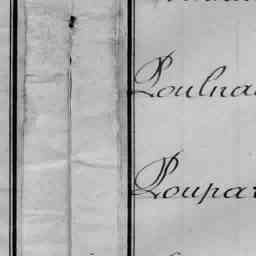 Poulna
Poupar